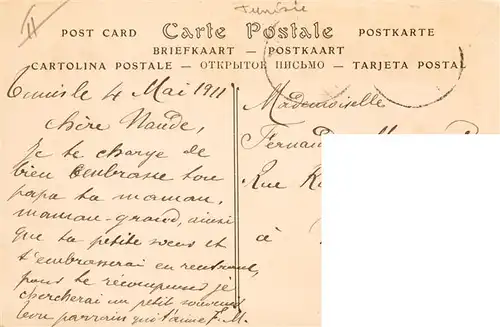 II
Tunisie
POST CARD Carte Postale POSTKARTE
BRIEFKAART — POSTKAART
CARTOLINA POSTALE — ОТКРЫТОЕ ПИСЬМО — TARJETA POSTAL
Tunis le 4 Mai 1911
chère Naude,
je te charge de
bien embrasse ton
papa ta maman,
maman-grand, ainsi
que ta petite soeur et
t'embrasserai en rentrant,
pour te récompenser je
chercherai un petit souvenir
ton parrain qui t'aime F.M.
Mademoiselle
Fernan
Rue
à